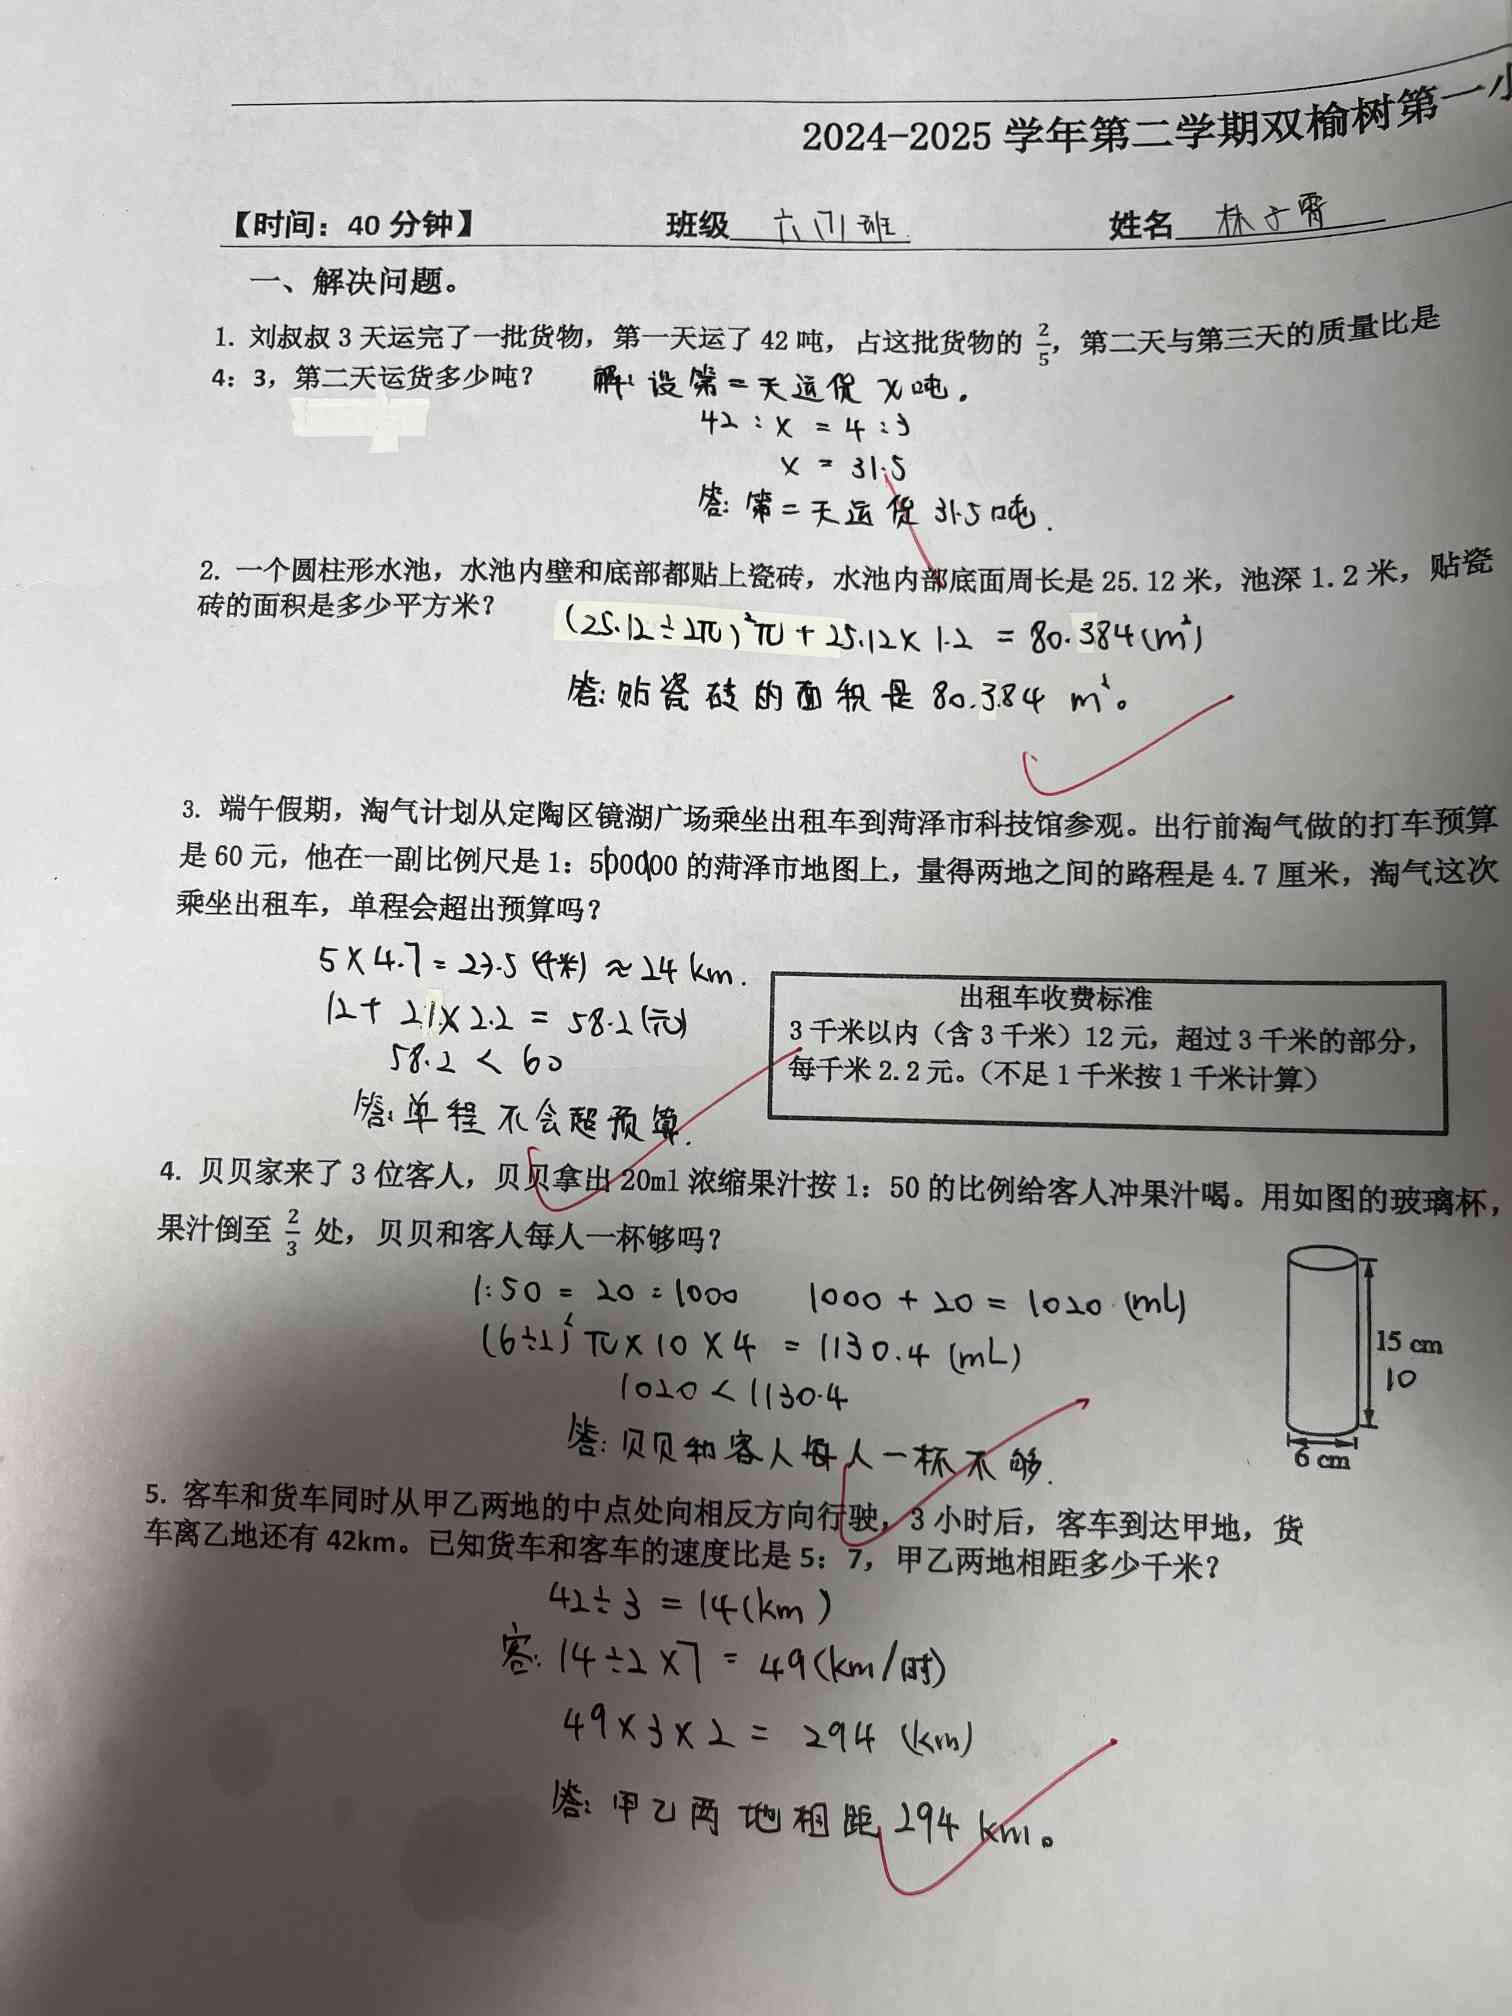 2024-2025 学年第二学期双榆树第一小
【时间：40 分钟】 班级 六(1)班 姓名 林子霄
一、解决问题。
1. 刘叔叔 3 天运完了一批货物，第一天运了 42 吨，占这批货物的 2/5，第二天与第三天的质量比是
4：3，第二天运货多少吨？ 解：设第二天运货 x 吨。
42 : x = 4 : 3
x = 31.5
答：第二天运货 31.5 吨.
2. 一个圆柱形水池，水池内壁和底部都贴上瓷砖，水池内部底面周长是 25.12 米，池深 1.2 米，贴瓷
砖的面积是多少平方米？
(25.12÷2π)²π + 25.12×1.2 = 80.384(m²)
答：贴瓷砖的面积是 80.384 m²。
3. 端午假期，淘气计划从定陶区镜湖广场乘坐出租车到菏泽市科技馆参观。出行前淘气做的打车预算
是 60 元，他在一副比例尺是 1：500000 的菏泽市地图上，量得两地之间的路程是 4.7 厘米，淘气这次
乘坐出租车，单程会超出预算吗？
5×4.7 = 23.5 (千米) ≈ 24 km.
12 + 21×2.2 = 58.2 (元)
58.2 < 60
答：单程不会超预算.
出租车收费标准
3 千米以内（含 3 千米）12 元，超过 3 千米的部分，
每千米 2.2 元。（不足 1 千米按 1 千米计算）
4. 贝贝家来了 3 位客人，贝贝拿出 20ml 浓缩果汁按 1：50 的比例给客人冲果汁喝。用如图的玻璃杯，
果汁倒至 2/3 处，贝贝和客人每人一杯够吗？
1:50 = 20:1000 1000 + 20 = 1020 (mL)
(6÷2)²π×10×4 = 1130.4 (mL)
1020 < 1130.4
答：贝贝和客人每人一杯不够.
15 cm
10
6 cm
5. 客车和货车同时从甲乙两地的中点处向相反方向行驶，3 小时后，客车到达甲地，货
车离乙地还有 42km。已知货车和客车的速度比是 5：7，甲乙两地相距多少千米？
42÷3 = 14(km)
客：14÷2×7 = 49(km/时)
49×3×2 = 294 (km)
答：甲乙两地相距 294 km。